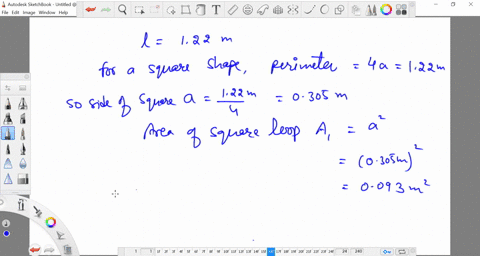 Autodesk SketchBook - Untitled @
l = 1.22 m
for a square shape, perimeter = 4a = 1.22 m
so side of square a = 1.22 m / 4 = 0.305 m
Area of square loop A₁ = a²
= (0.305m)²
= 0.093 m²